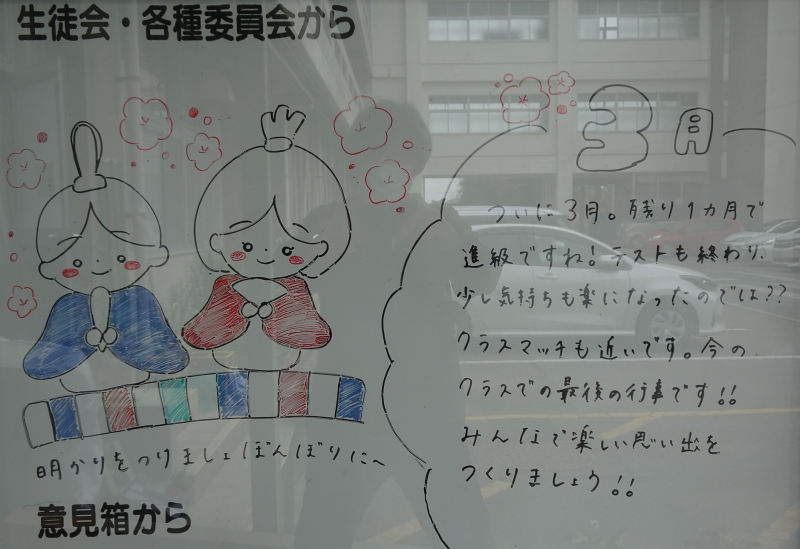 生徒会・各種委員会から
3月
ついに3月。残り1カ月で
進級ですね!テストも終わり、
少し気持ちも楽になったのでは??
クラスマッチも近いです。今の
クラスでの最後の行事です!!
みんなで楽しい思い出を
つくりましょう!!
明かりをつけましょぼんぼりに~
意見箱から